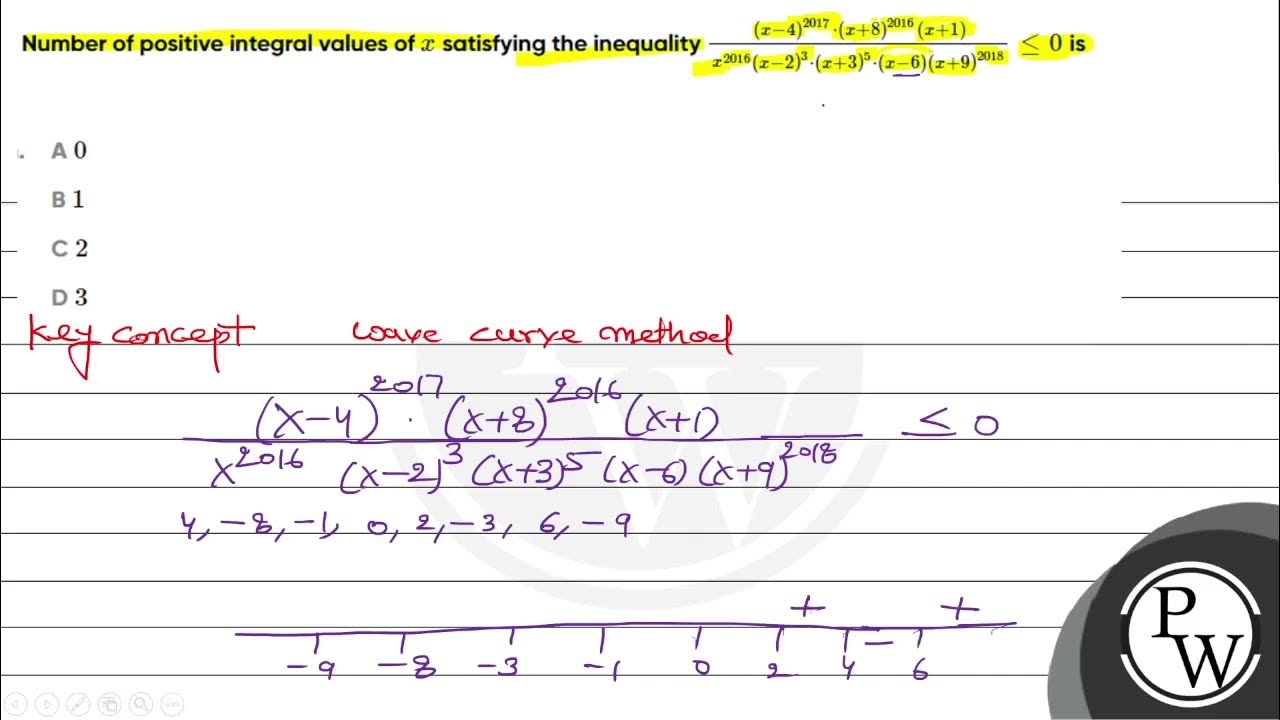 Number of positive integral values of x satisfying the inequality (x−4)^2017·(x+8)^2016(x+1) / x^2016(x−2)^3·(x+3)^5·(x−6)(x+9)^2018 ≤ 0 is
A 0
B 1
C 2
D 3
Key concept wave curve method
(x−4)^2017 · (x+8)^2016 (x+1) / x^2016 (x−2)^3 (x+3)^5 (x−6) (x+9)^2018 ≤ 0
4, −8, −1, 0, 2, −3, 6, −9
+ − +
−9 −8 −3 −1 0 2 4 6
PW